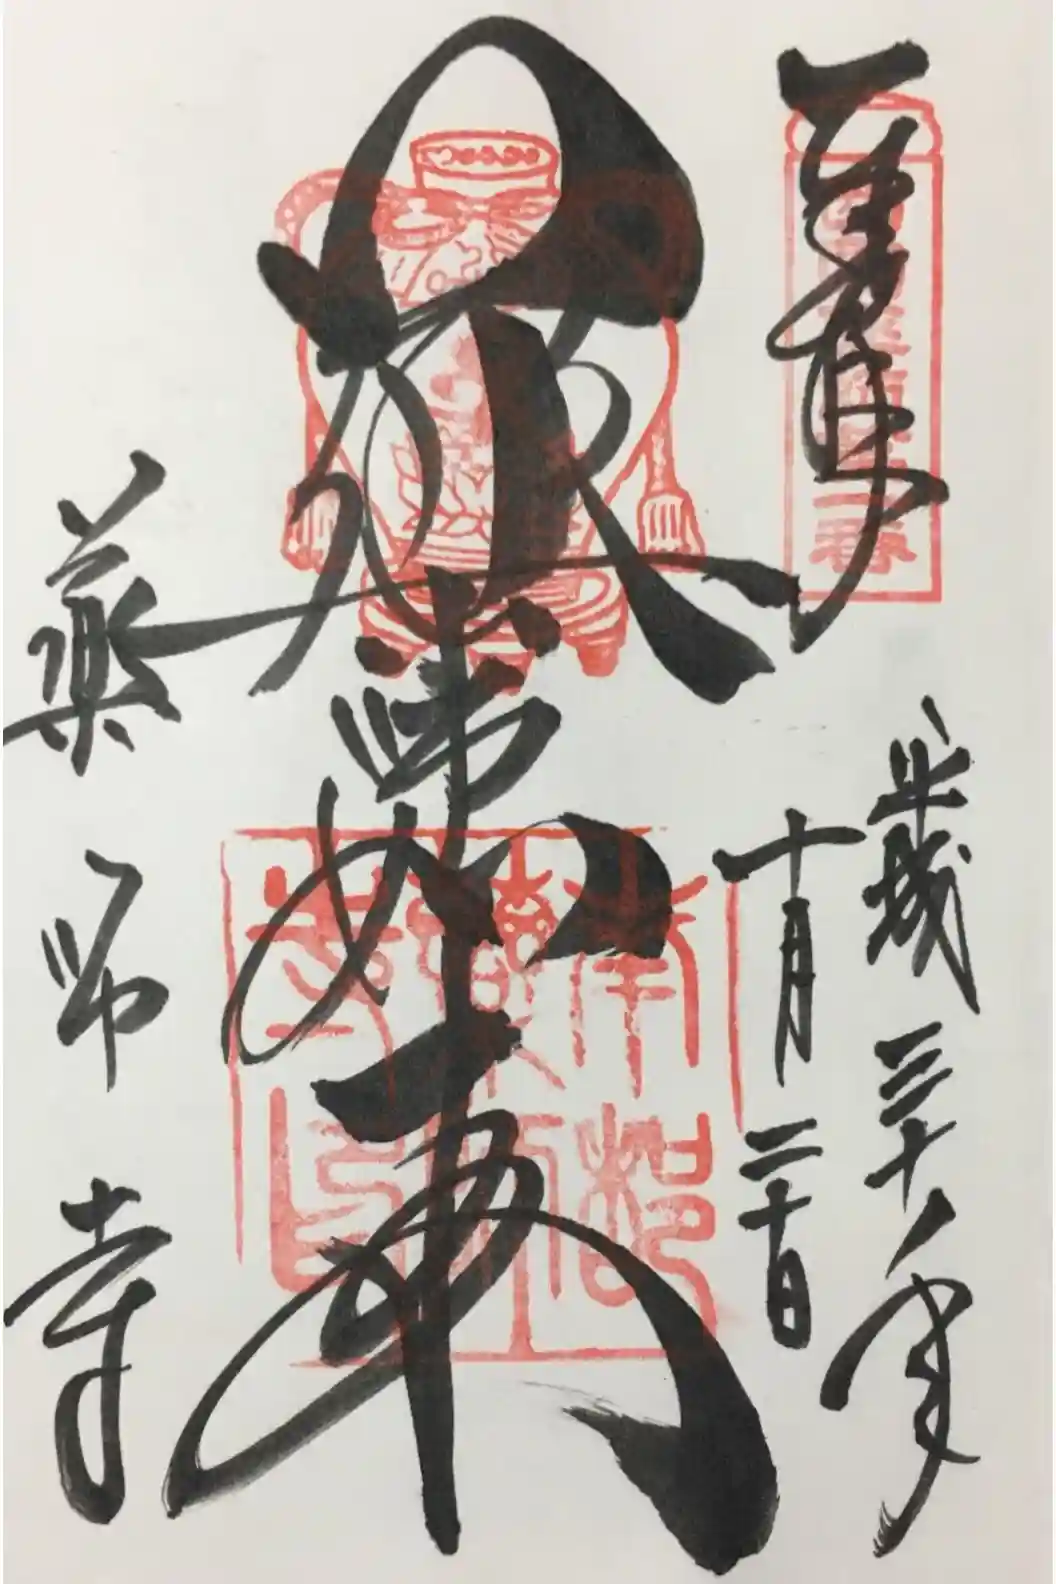 奉拝
平成三十年
十月二十日
薬師如来
薬師寺